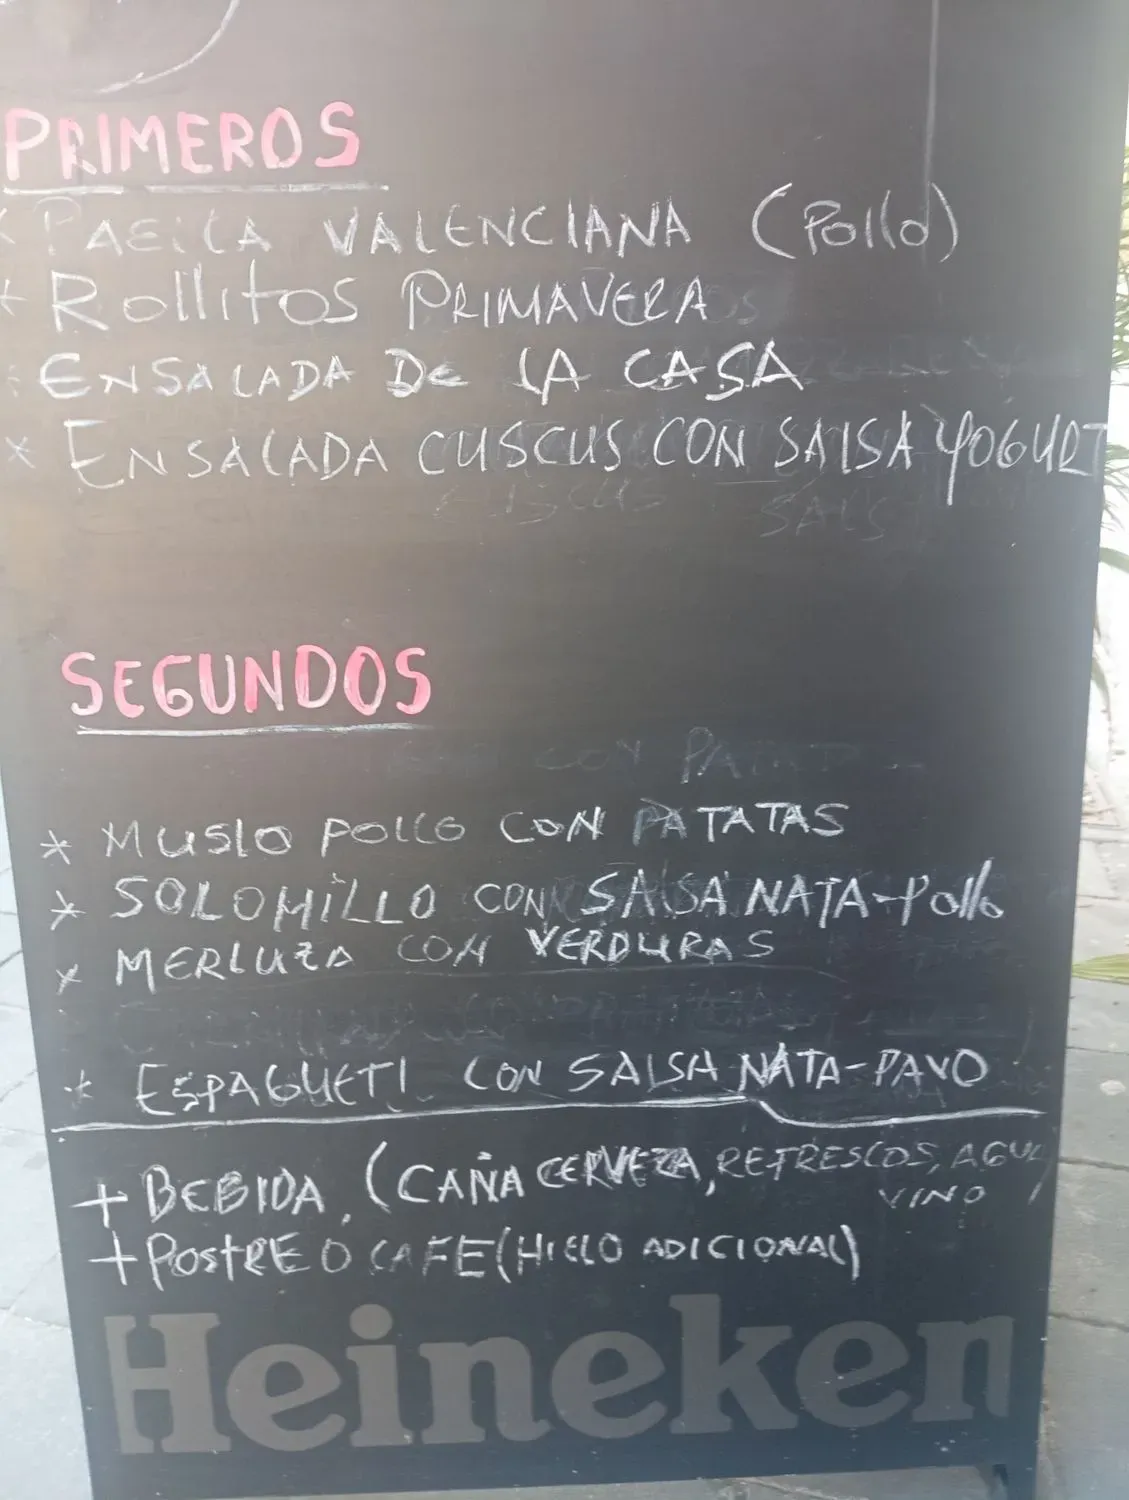 PRIMEROS
* PAELLA VALENCIANA (Pollo)
* Rollitos PRIMAVERA
* ENSALADA DE LA CASA
* ENSALADA CUSCUS CON SALSA YOGURT
SEGUNDOS
* MUSLO POLLO CON PATATAS
* SOLOMILLO CON SALSA NATA-Pollo
* MERLUZA CON VERDURAS
* ESPAGUETI CON SALSA NATA-PAVO
+ BEBIDA. (CAÑA CERVEZA, REFRESCOS, AGUA
VINO)
+ POSTRE O CAFE (HIELO ADICIONAL)
Heineken